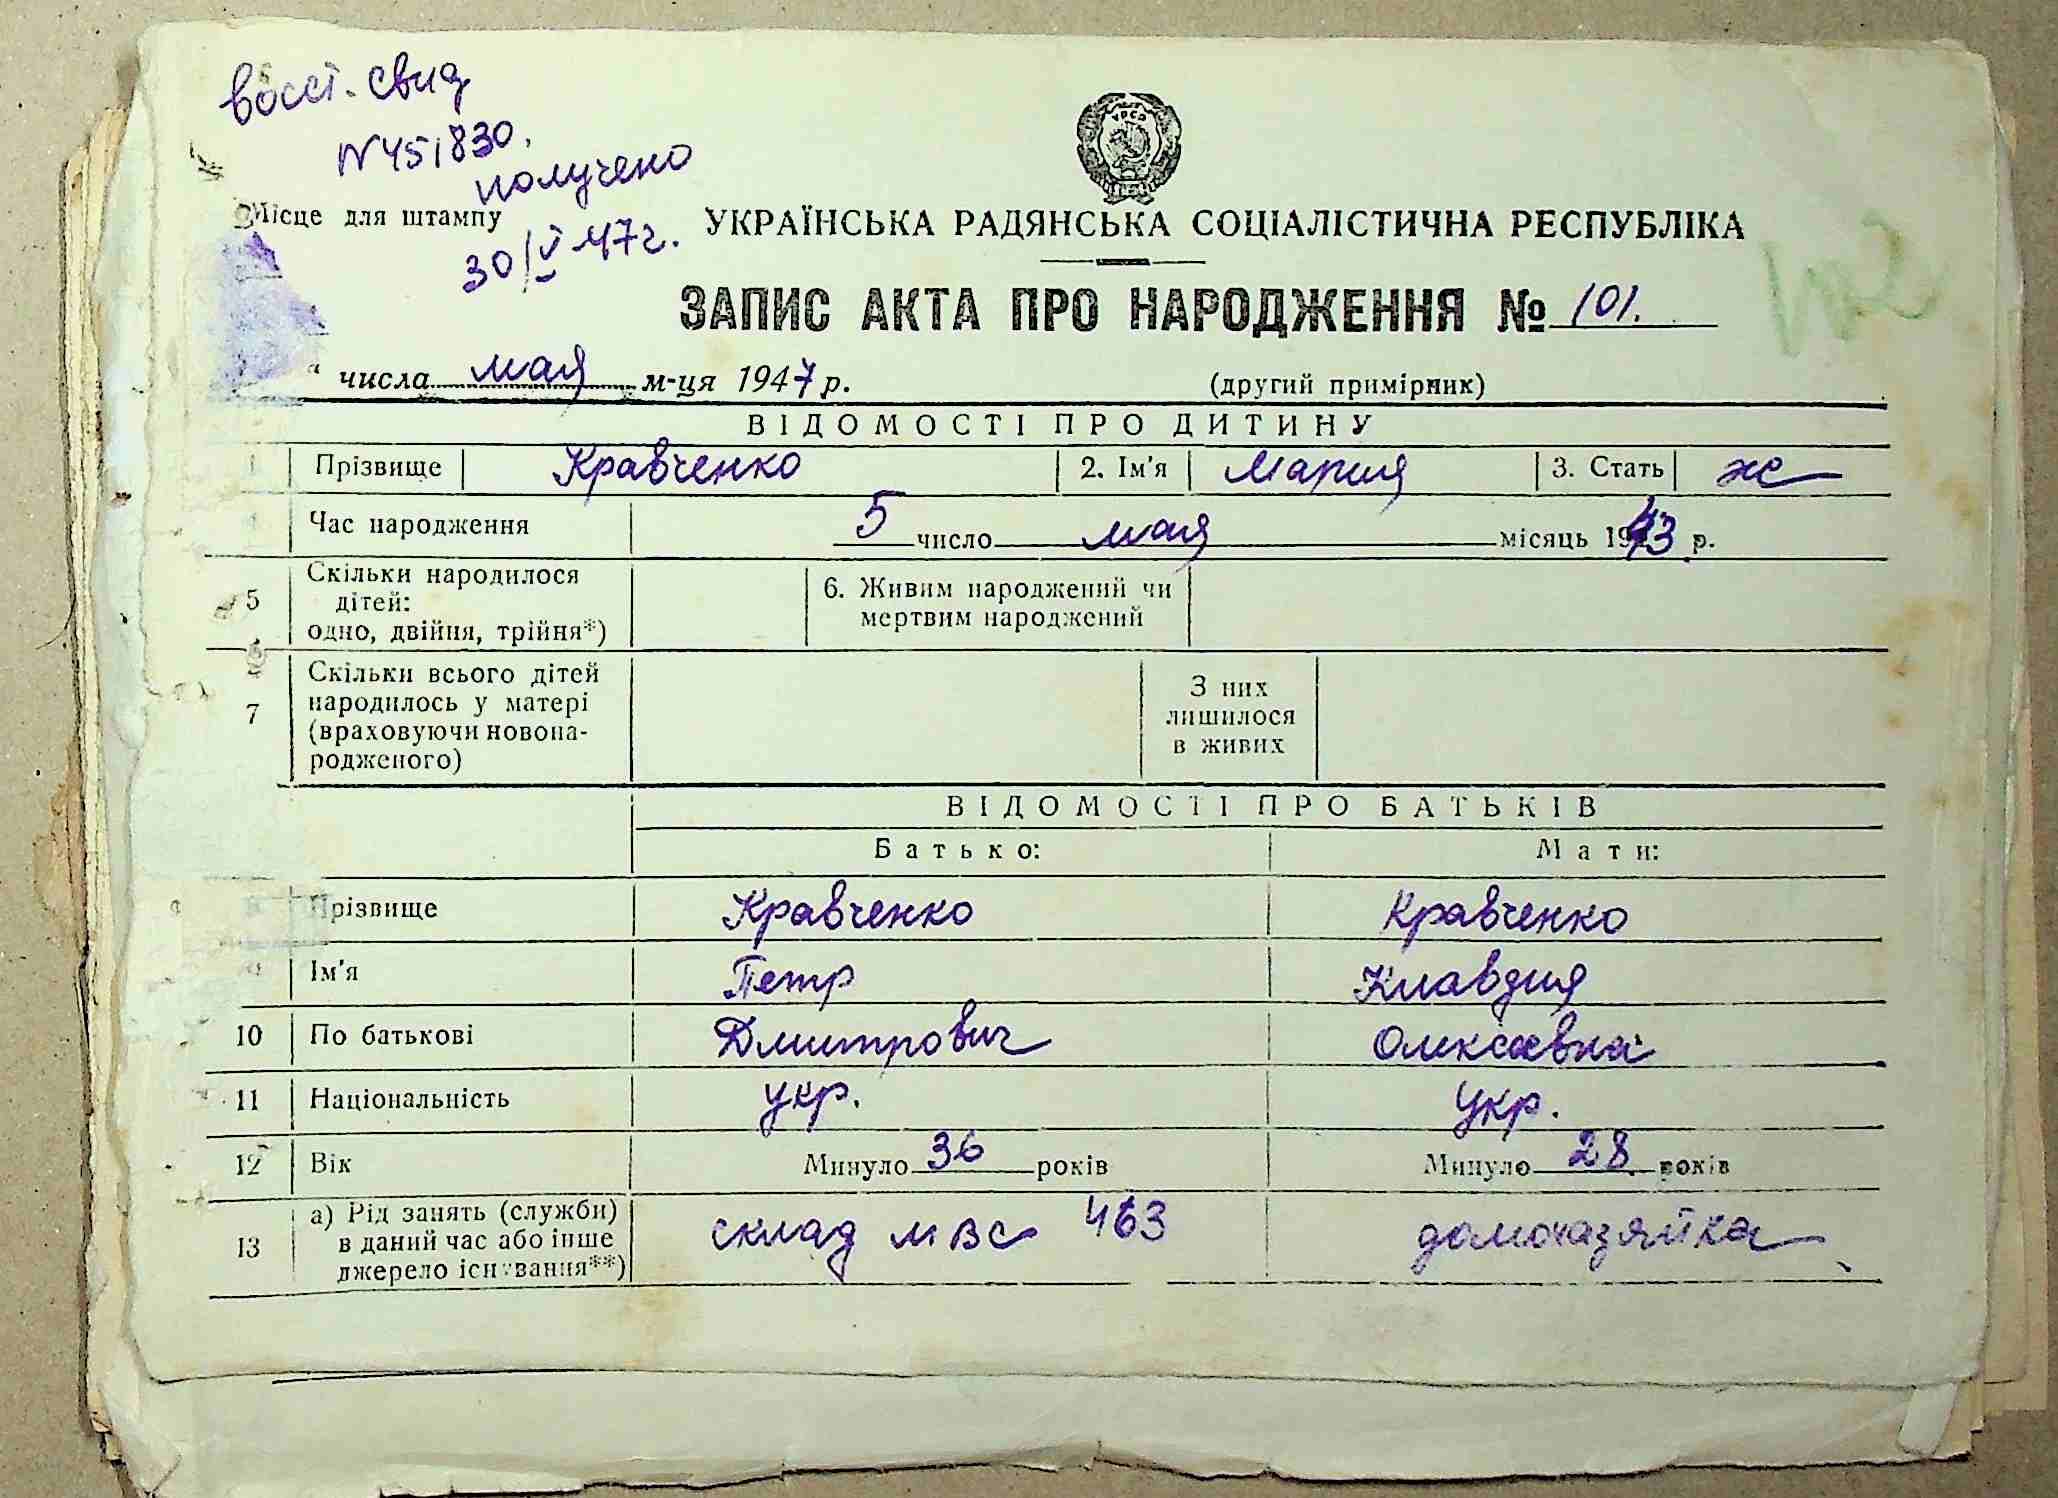 восст. свид
N 451830.
получено
Місце для штампу
30/V 47 г.
УРСР
УКРАЇНСЬКА РАДЯНСЬКА СОЦІАЛІСТИЧНА РЕСПУБЛІКА
ЗАПИС АКТА ПРО НАРОДЖЕННЯ № 101.
числа мая м-ця 1947 р. (другий примірник)
ВІДОМОСТІ ПРО ДИТИНУ
1 Прізвище Кравченко 2. Ім'я Мария 3. Стать ж
Час народження 5 число мая місяць 1943 р.
5 Скільки народилося дітей: одно, двійня, трійня*) 6. Живим народжений чи мертвим народжений
7 Скільки всього дітей народилось у матері (враховуючи новона-родженого) З них лишилося в живих
ВІДОМОСТІ ПРО БАТЬКІВ
Батько: Мати:
Прізвище Кравченко Кравченко
9 Ім'я Петр Клавдия
10 По батькові Дмитрович Олексаевна
11 Національність укр. укр.
12 Вік Минуло 36 років Минуло 28 років
13 а) Рід занять (служби) в даний час або інше джерело існування**) склад мвс 463 домохазяйка